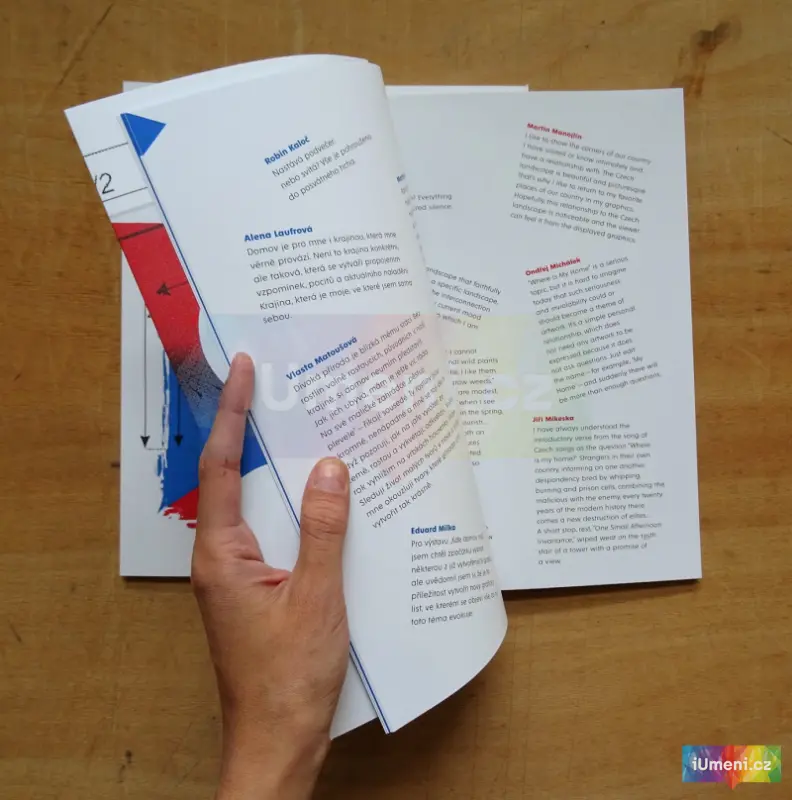 1/2
Robin Kaloč
Nastává podvečer
nebo svítá? Vše je pohrouženo
do posvátného ticha.
Alena Laufrová
Domov je pro mne i krajina, která mne
věrně provází. Není to krajina konkrétní,
ale taková, která se vytváří propojením
vzpomínek, pocitů a aktuálního naladění.
Krajina, která je moje, ve které jsem sama
sebou.
Vlasta Matoušová
Divoká příroda je blízká mému srdci. Bez
rostlin volně rostoucích, původních v naší
krajině, si domov neumím představit.
Jak jich ubývá, mám je ještě víc ráda.
Na své maličké zahrádce pěstuji
plevele" – říkají sousedé. Ty rostliny jsou
skromné, nenápadné a mně se
když pozoruji, jak na jaře vyráží ze
země, rostou a vykvétají
rok vyhlížím na vrbách
Sleduji život malých tvorů v
mne okouzlují tvary, které
vytvořit tak krásně.
Eduard Milka
Pro výstavu „Kde domov
jsem chtěl zpočátku vybrat
některou z již vytvořených
ale uvědomil jsem si, že je to
příležitost vytvořit nový grafický
list, ve kterém se objeví vše, co
toto téma evokuje.
Everything
silence.
landscape that faithfully
a specific landscape,
the interconnection
current mood
which I am
I cannot
wild plants
I like them
"grow weeds,"
are modest,
when I see
in the spring,
Martin Manojlín
I like to show the corners of our country
I have visited or know intimately and
have a relationship with. The Czech
landscape is beautiful and picturesque
that's why I like to return to my favorite
places of our country in my graphics.
Hopefully this relationship to the Czech
landscape is noticeable and the viewer
can feel it from the displayed graphics.
Ondřej Michálek
"Where Is My Home" is a serious
topic, but it is hard to imagine
today that such seriousness
and inviolability could or
should become a theme of
artwork. It's a simple personal
relationship, which does
not need any artwork to be
expressed because it does
not ask questions. Just edit
the name – for example, "My
Home" – and suddenly there will
be more than enough questions.
Jiří Mikeska
I have always understood the
introductory verse from the song of
Czech songs as the question "Where
is my home?" Strangers in their own
country, informing on one another,
despondency bred by whipping,
burning and prison cells, combining the
malicious with the enemy every twenty
years of the modern history there
comes a new destruction of elites.
A short stop, rest, "One Small Afternoon
Irrelevance," wiped wear on the 195th
stair of a tower with a promise of
a view.
iUmeni.cz
iUmeni.cz